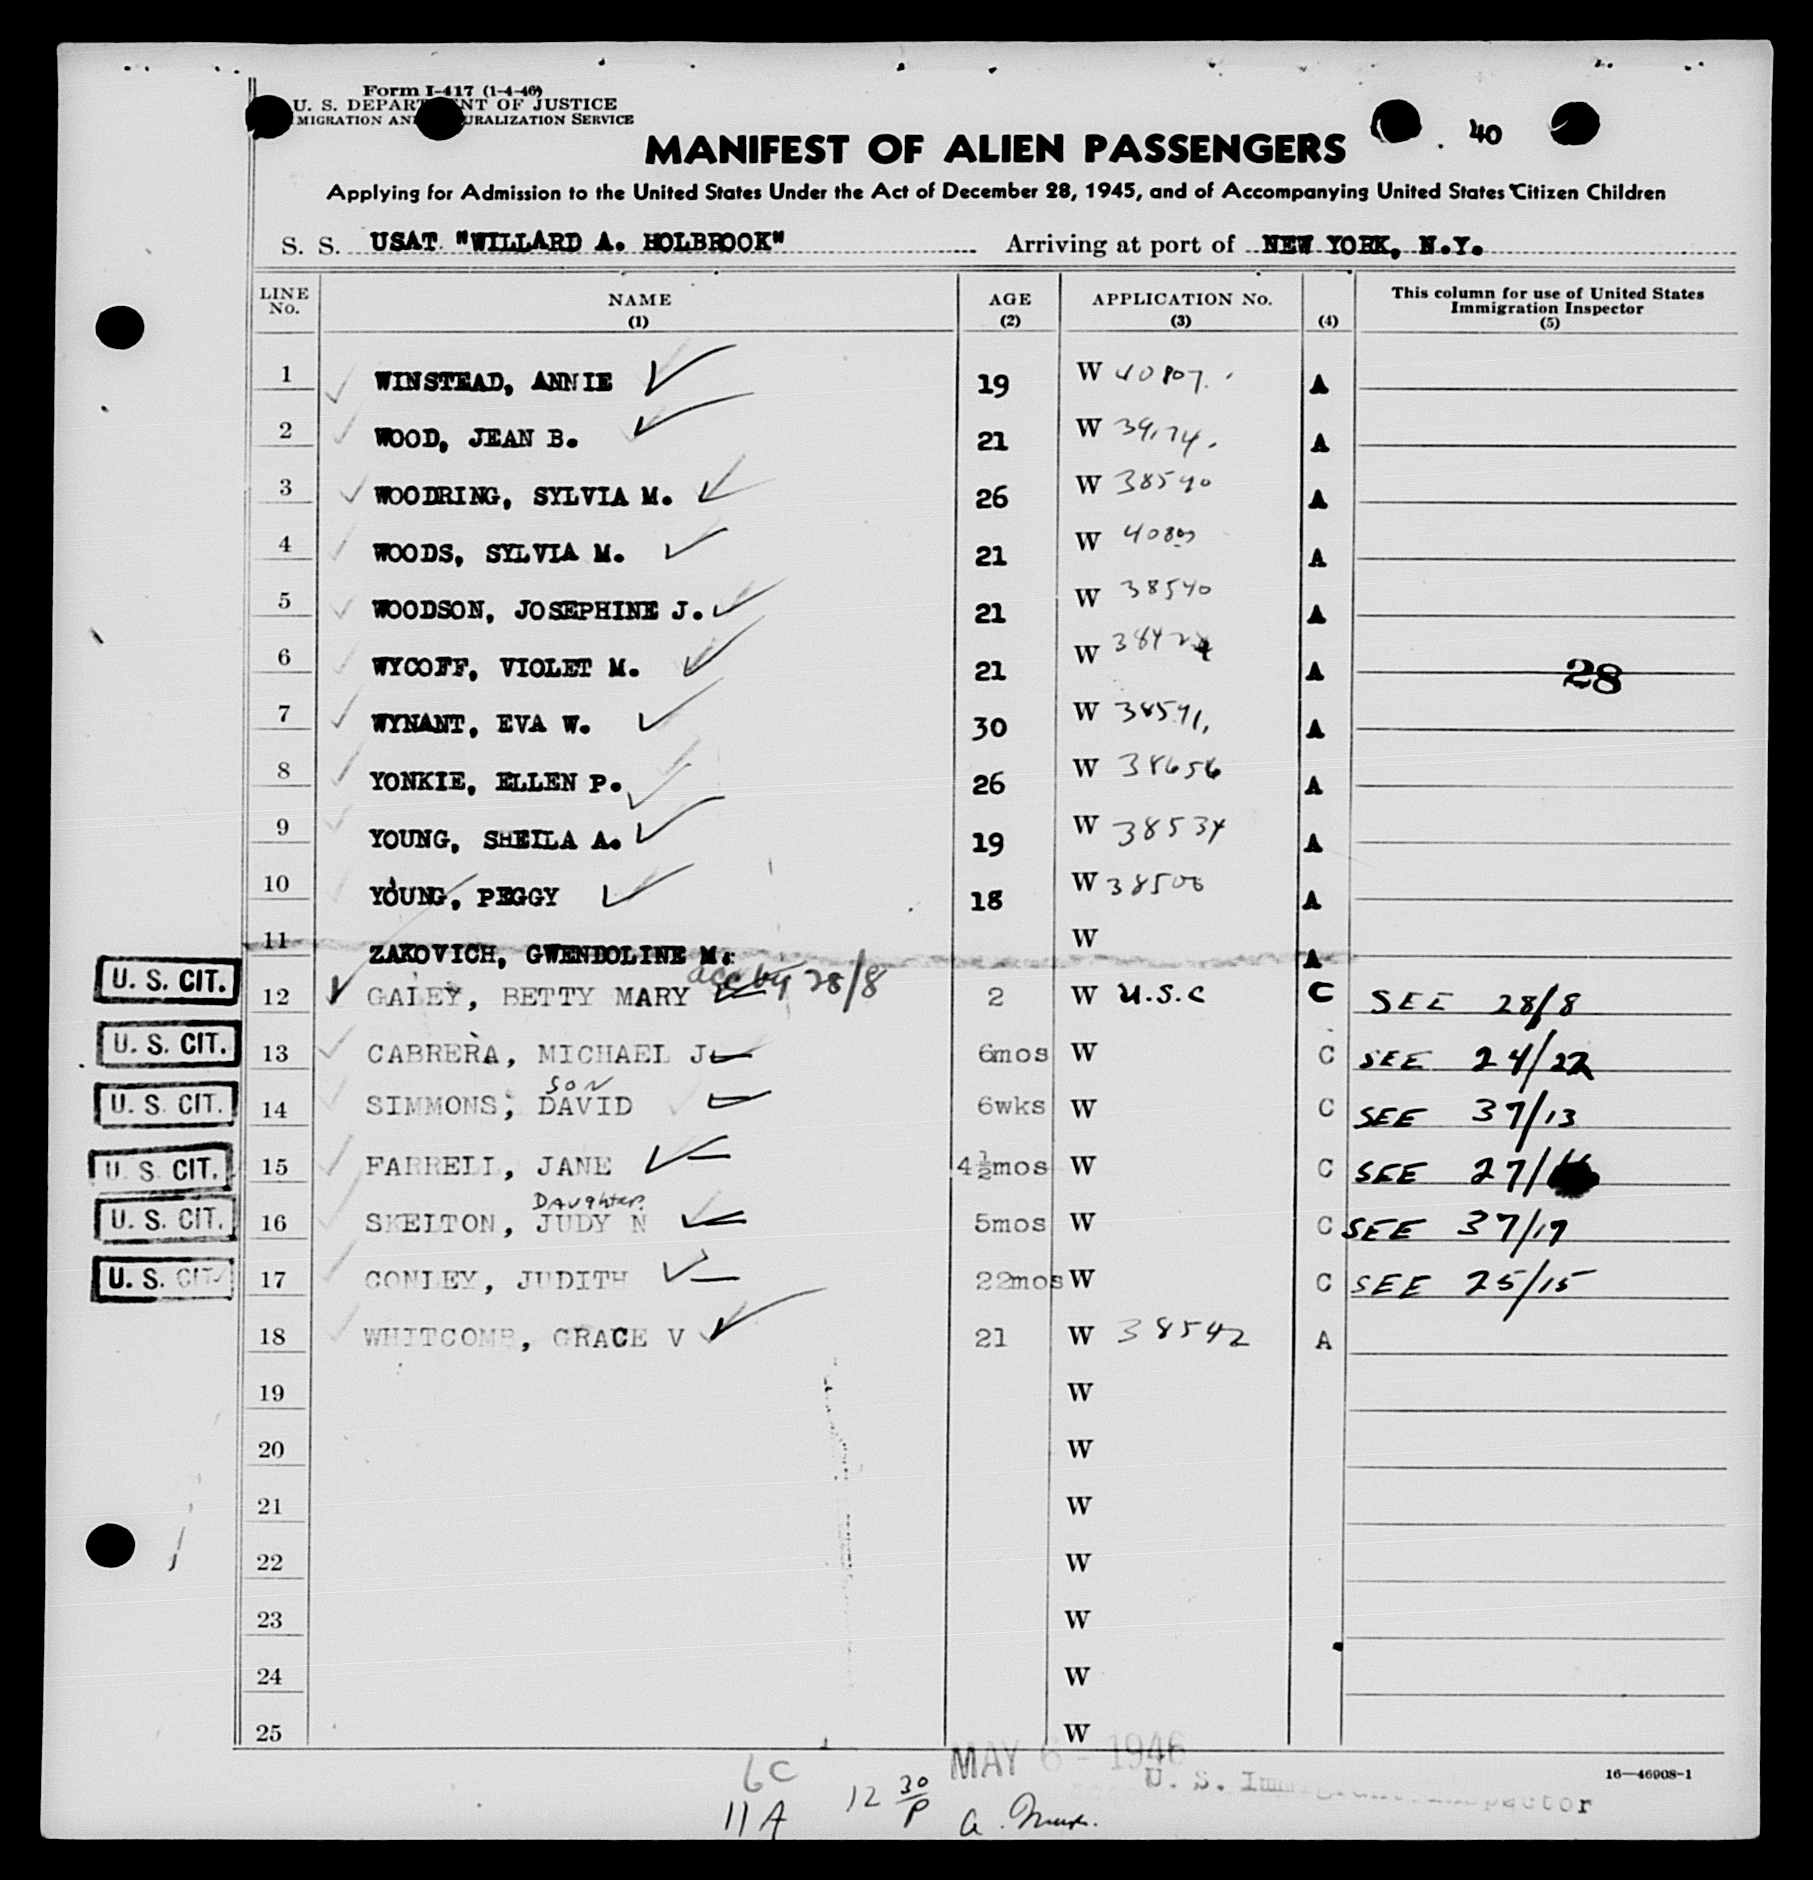 Form I-417 (1-4-46)
U. S. DEPARTMENT OF JUSTICE
IMMIGRATION AND NATURALIZATION SERVICE
40
MANIFEST OF ALIEN PASSENGERS
Applying for Admission to the United States Under the Act of December 28, 1945, and of Accompanying United States Citizen Children
S. S. USAT "WILLARD A. HOLBROOK" Arriving at port of NEW YORK, N.Y.
LINE No. NAME (1) AGE (2) APPLICATION No. (3) (4) This column for use of United States Immigration Inspector (5)
1 WINSTEAD, ANNIE 19 W 40807 A
2 WOOD, JEAN B. 21 W A
3 WOODRING, SYLVIA M. 26 W 38590 A
4 WOODS, SYLVIA M. 21 W A
5 WOODSON, JOSEPHINE J. 21 W 38540 A
6 WYCOFF, VIOLET M. 21 W A 28
7 WYNANT, EVA W. 30 W 38591 A
8 YONKIE, ELLEN P. 26 W 38656 A
9 YOUNG, SHEILA A. 19 W 38534 A
10 YOUNG, PEGGY 18 W 38506 A
11 ZAKOVICH, GWENDOLINE M. W A
acc by 28/8
U. S. CIT. 12 GALEY, BETTY MARY 2 W U.S.C C SEE 28/8
U. S. CIT. 13 CABRERA, MICHAEL J 6mos W C SEE 24/22
SON
U. S. CIT. 14 SIMMONS, DAVID 6wks W C SEE 37/13
U. S. CIT. 15 FARRELL, JANE 4½mos W C SEE 27/
Daughter
U. S. CIT. 16 SKELTON, JUDY N 5mos W C SEE 37/17
U. S. CIT. 17 CONLEY, JUDITH 22mos W C SEE 25/15
18 WHITCOMB, GRACE V 21 W 38542 A
19 W
20 W
21 W
22 W
23 W
24 W
25 W
MAY 6 - 1946
16—46908-1
6C
U. S. Immigrant Inspector
11A 12 30 P